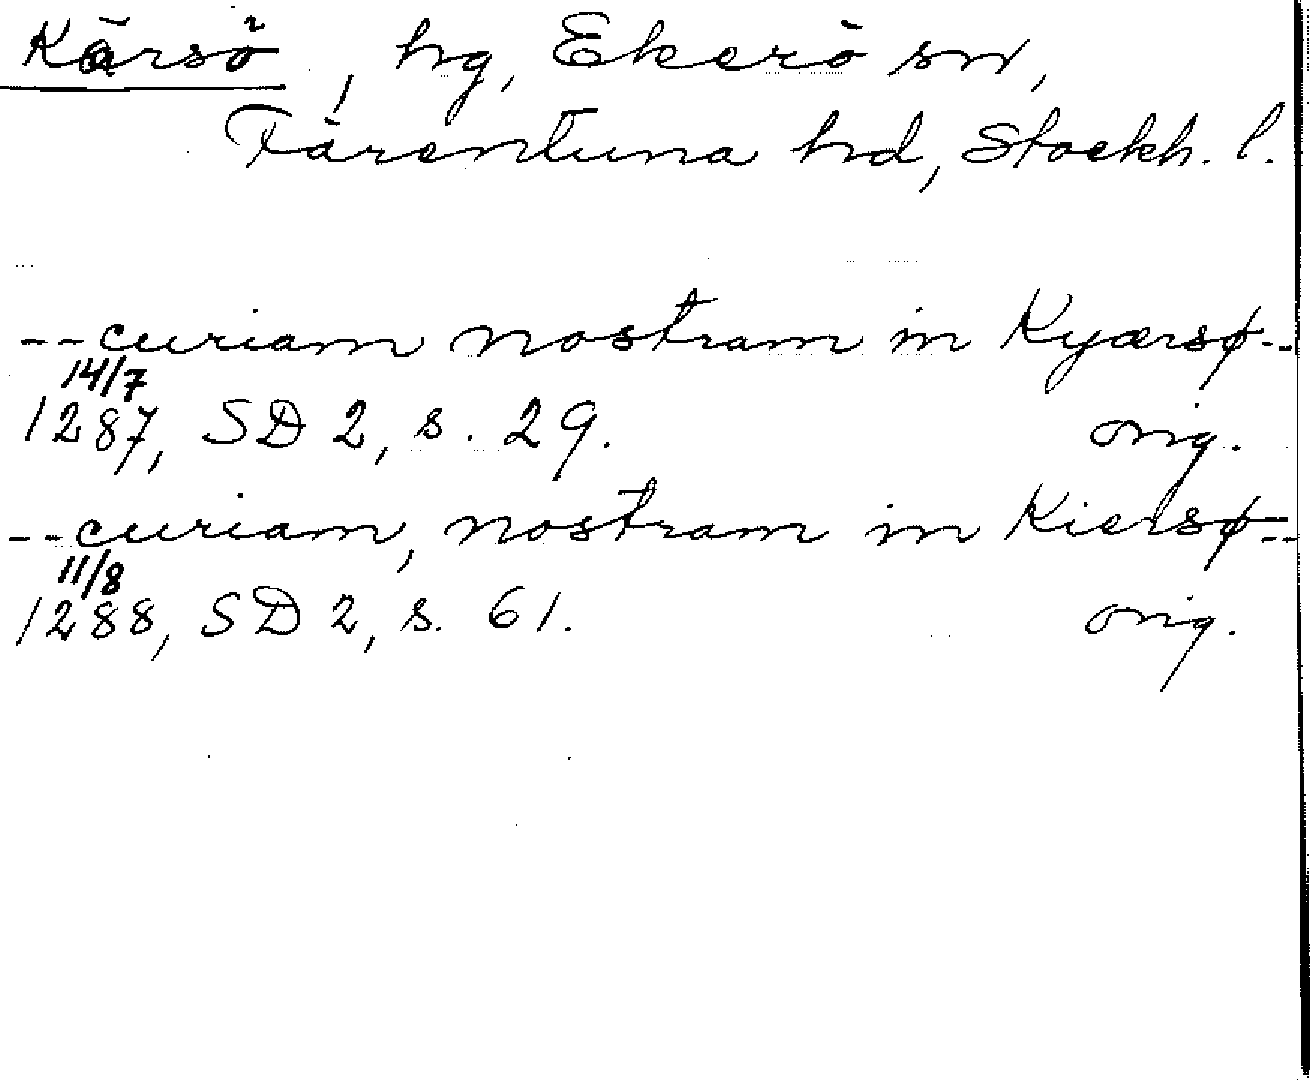 Kärsö, hg, Ekerö sn,
Färentuna hd, Stockh. l.
--curiam nostram in Kyærsø--
14/7
1287, SD 2, s. 29. orig.
--curiam, nostram in Kiersø--
11/8
1288, SD 2, s. 61. orig.